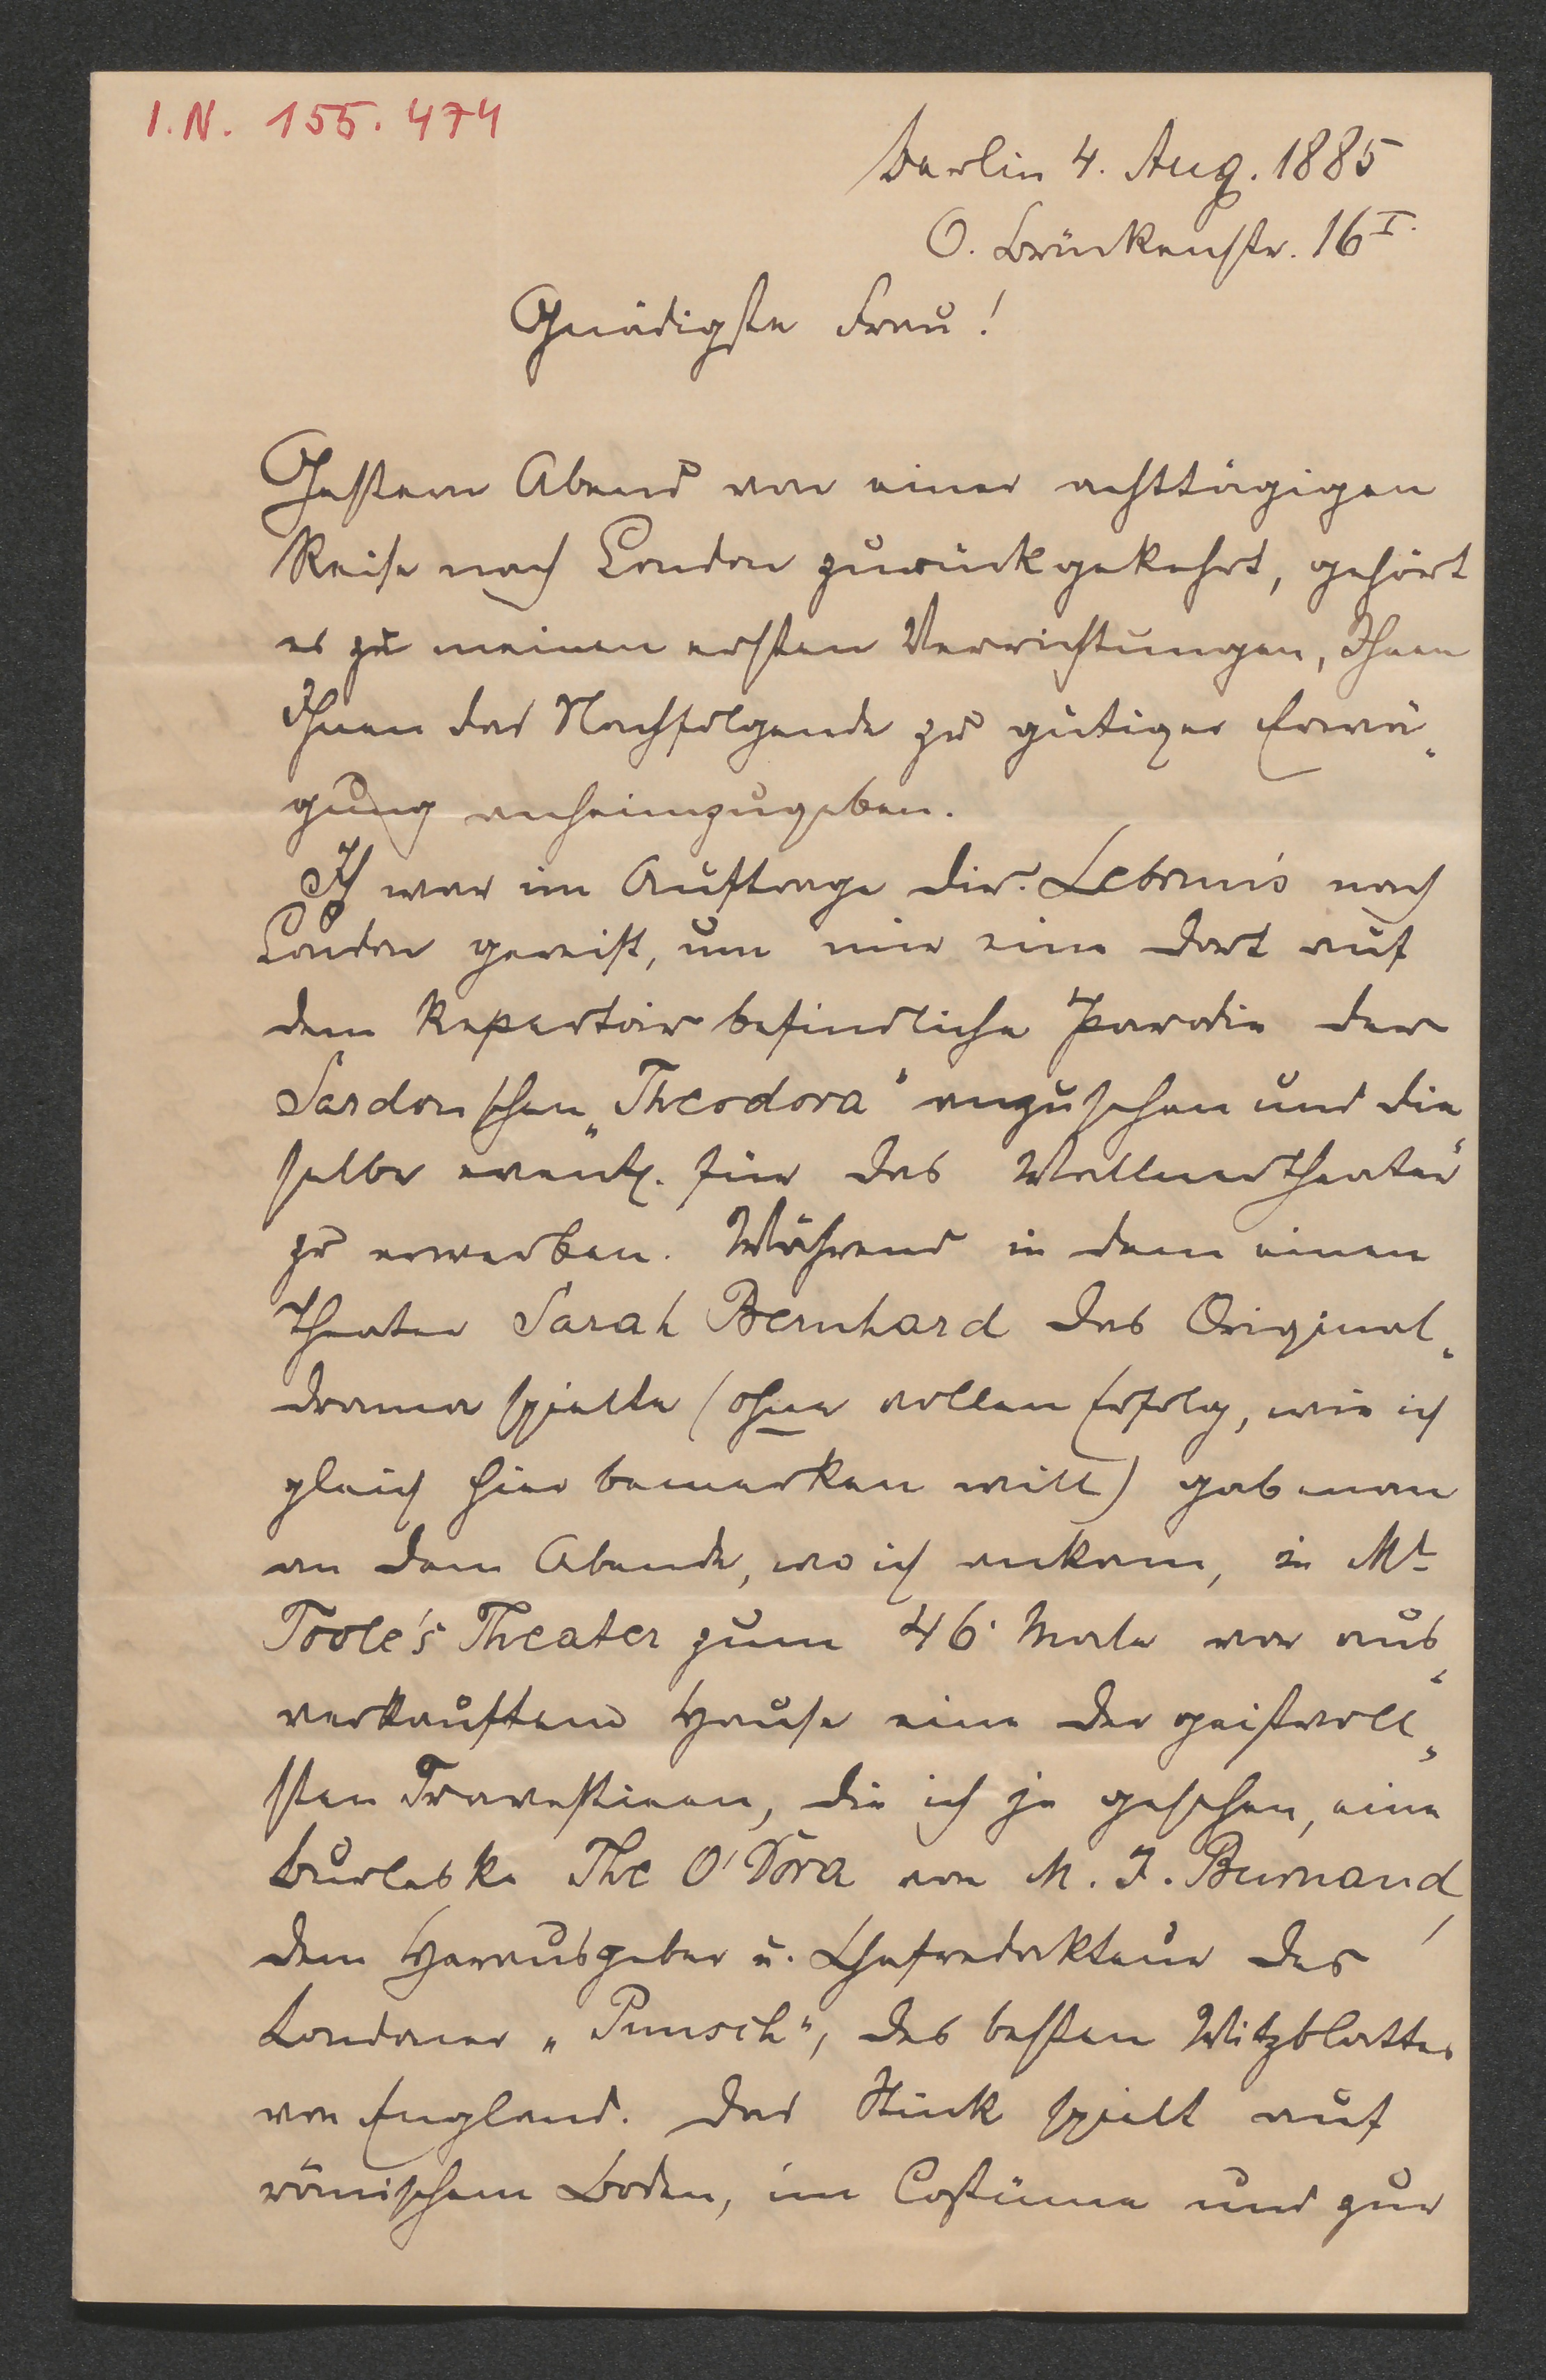 I.N. 155.474
Berlin 4. Aug. 1885
O. Brückenstr. 16 I.
Gnädigste Frau!
Gestern Abend von einer achttägigen
Reise nach London zurückgekehrt, gehört
es zu meinen ersten Verrichtungen, Ihnen
Ihnen das Nachfolgende zu gütiger Erwä-
gung anheimzugeben.
Ich war im Auftrage Dir. Lebrun's nach
London gereist, um mir eine dort auf
dem Repertoir befindliche Parodie der
Sardou'schen „Theodora" anzusehen und die-
selbe eventl. für das Wallnertheater
zu erwerben. Während in dem einen
Theater Sarah Bernhard das Original-
drama spielte (ohne vollen Erfolg, wie ich
gleich hier bemerken will) gab man
an dem Abende, wo ich ankam, in Mr
Toole's Theater zum 46. Male vor aus-
verkauftem Hause eine der geistvoll-
sten Travestieen, die ich je gesehen, eine
Burleske The O'Dora von M. F. Burnand,
dem Herausgeber u. Chefredakteur des
Londoner „Punsch", des besten Witzblattes
von England. Das Stück spielt auf
römischem Boden, im Costüme und zur